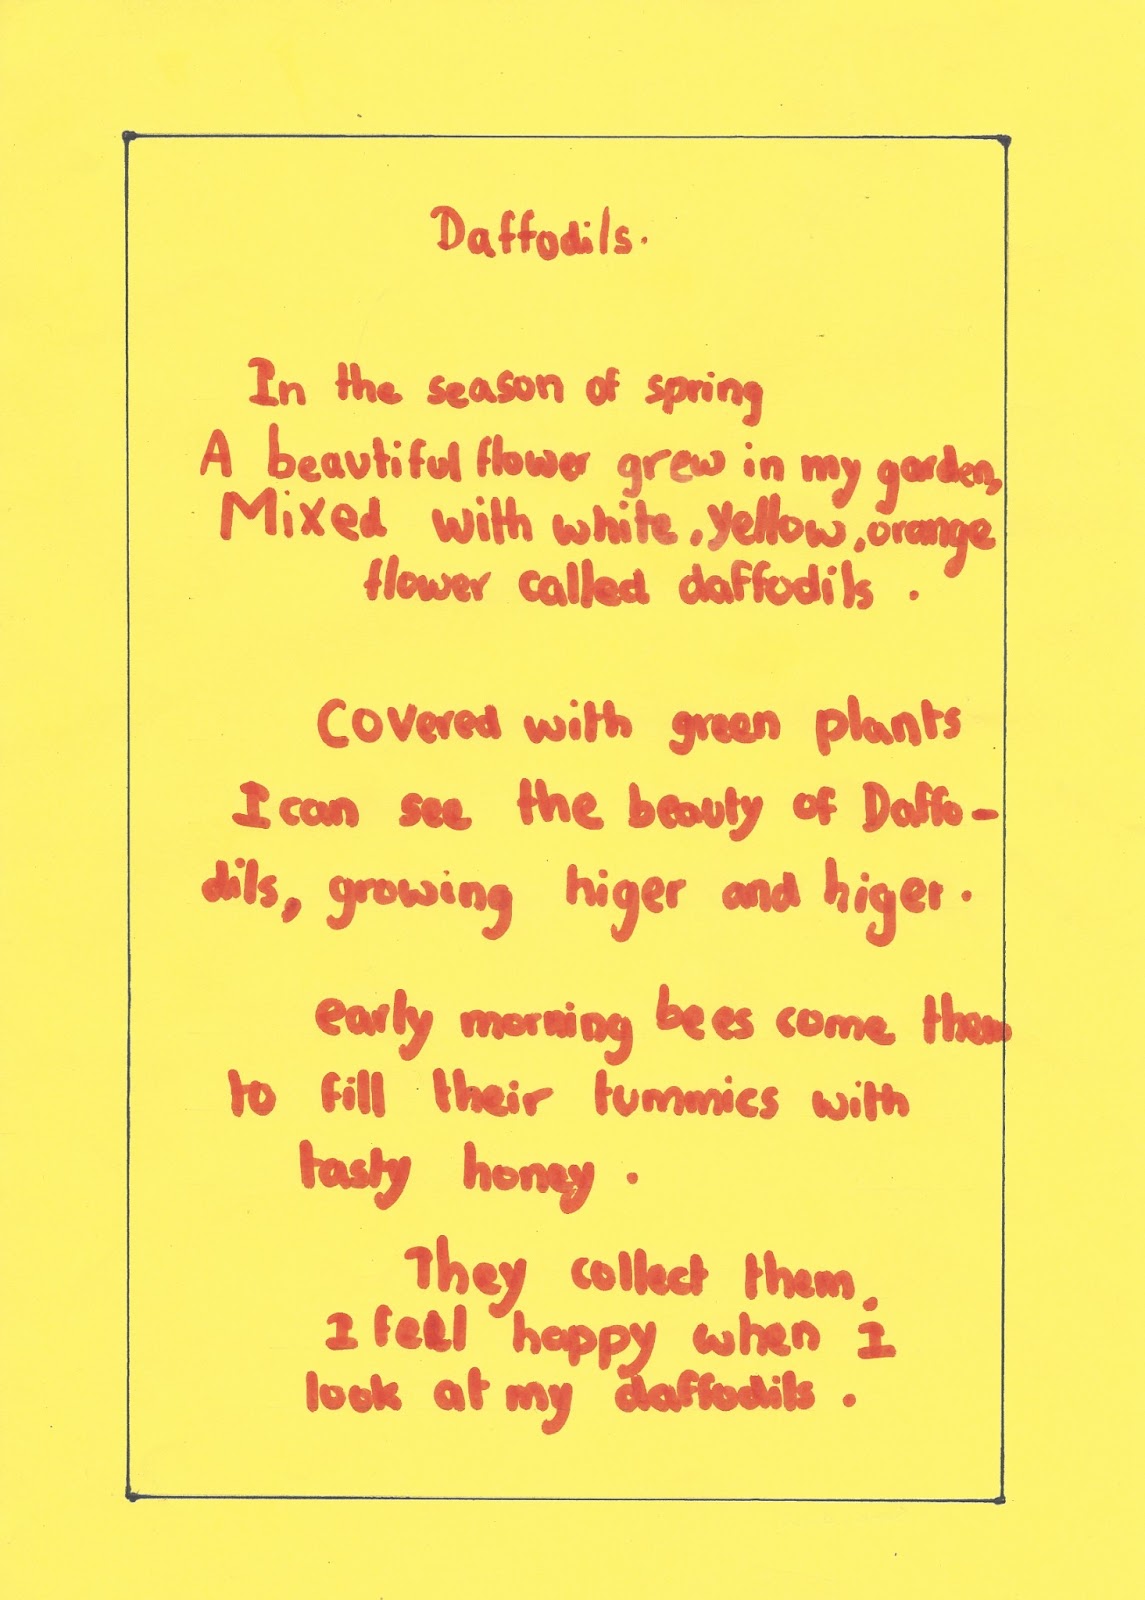 Daffodils.
In the season of spring
A beautiful flower grew in my garden,
Mixed with white, yellow, orange
flower called daffodils.
Covered with green plants
I can see the beauty of Daffo-
dils, growing higer and higer.
early morning bees come them
to fill their tummies with
tasty honey.
They collect them.
I feel happy when I
look at my daffodils.